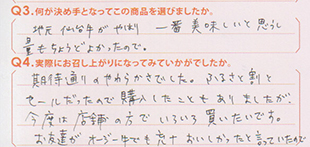 Q3.何が決め手となってこの商品を選びましたか。
地元仙台牛がやはり一番美味しいと思うし
量もちょうどよかったので。
Q4.実際にお召し上がりになってみていかがでしたか。
期待通りのやわらかさでした。ふるさと割と
セールだったので購入したこともありましたが、
今度は店舗の方でいろいろ買いたいです。
お友達がオージー牛でも充十おいしかったと言っていたので